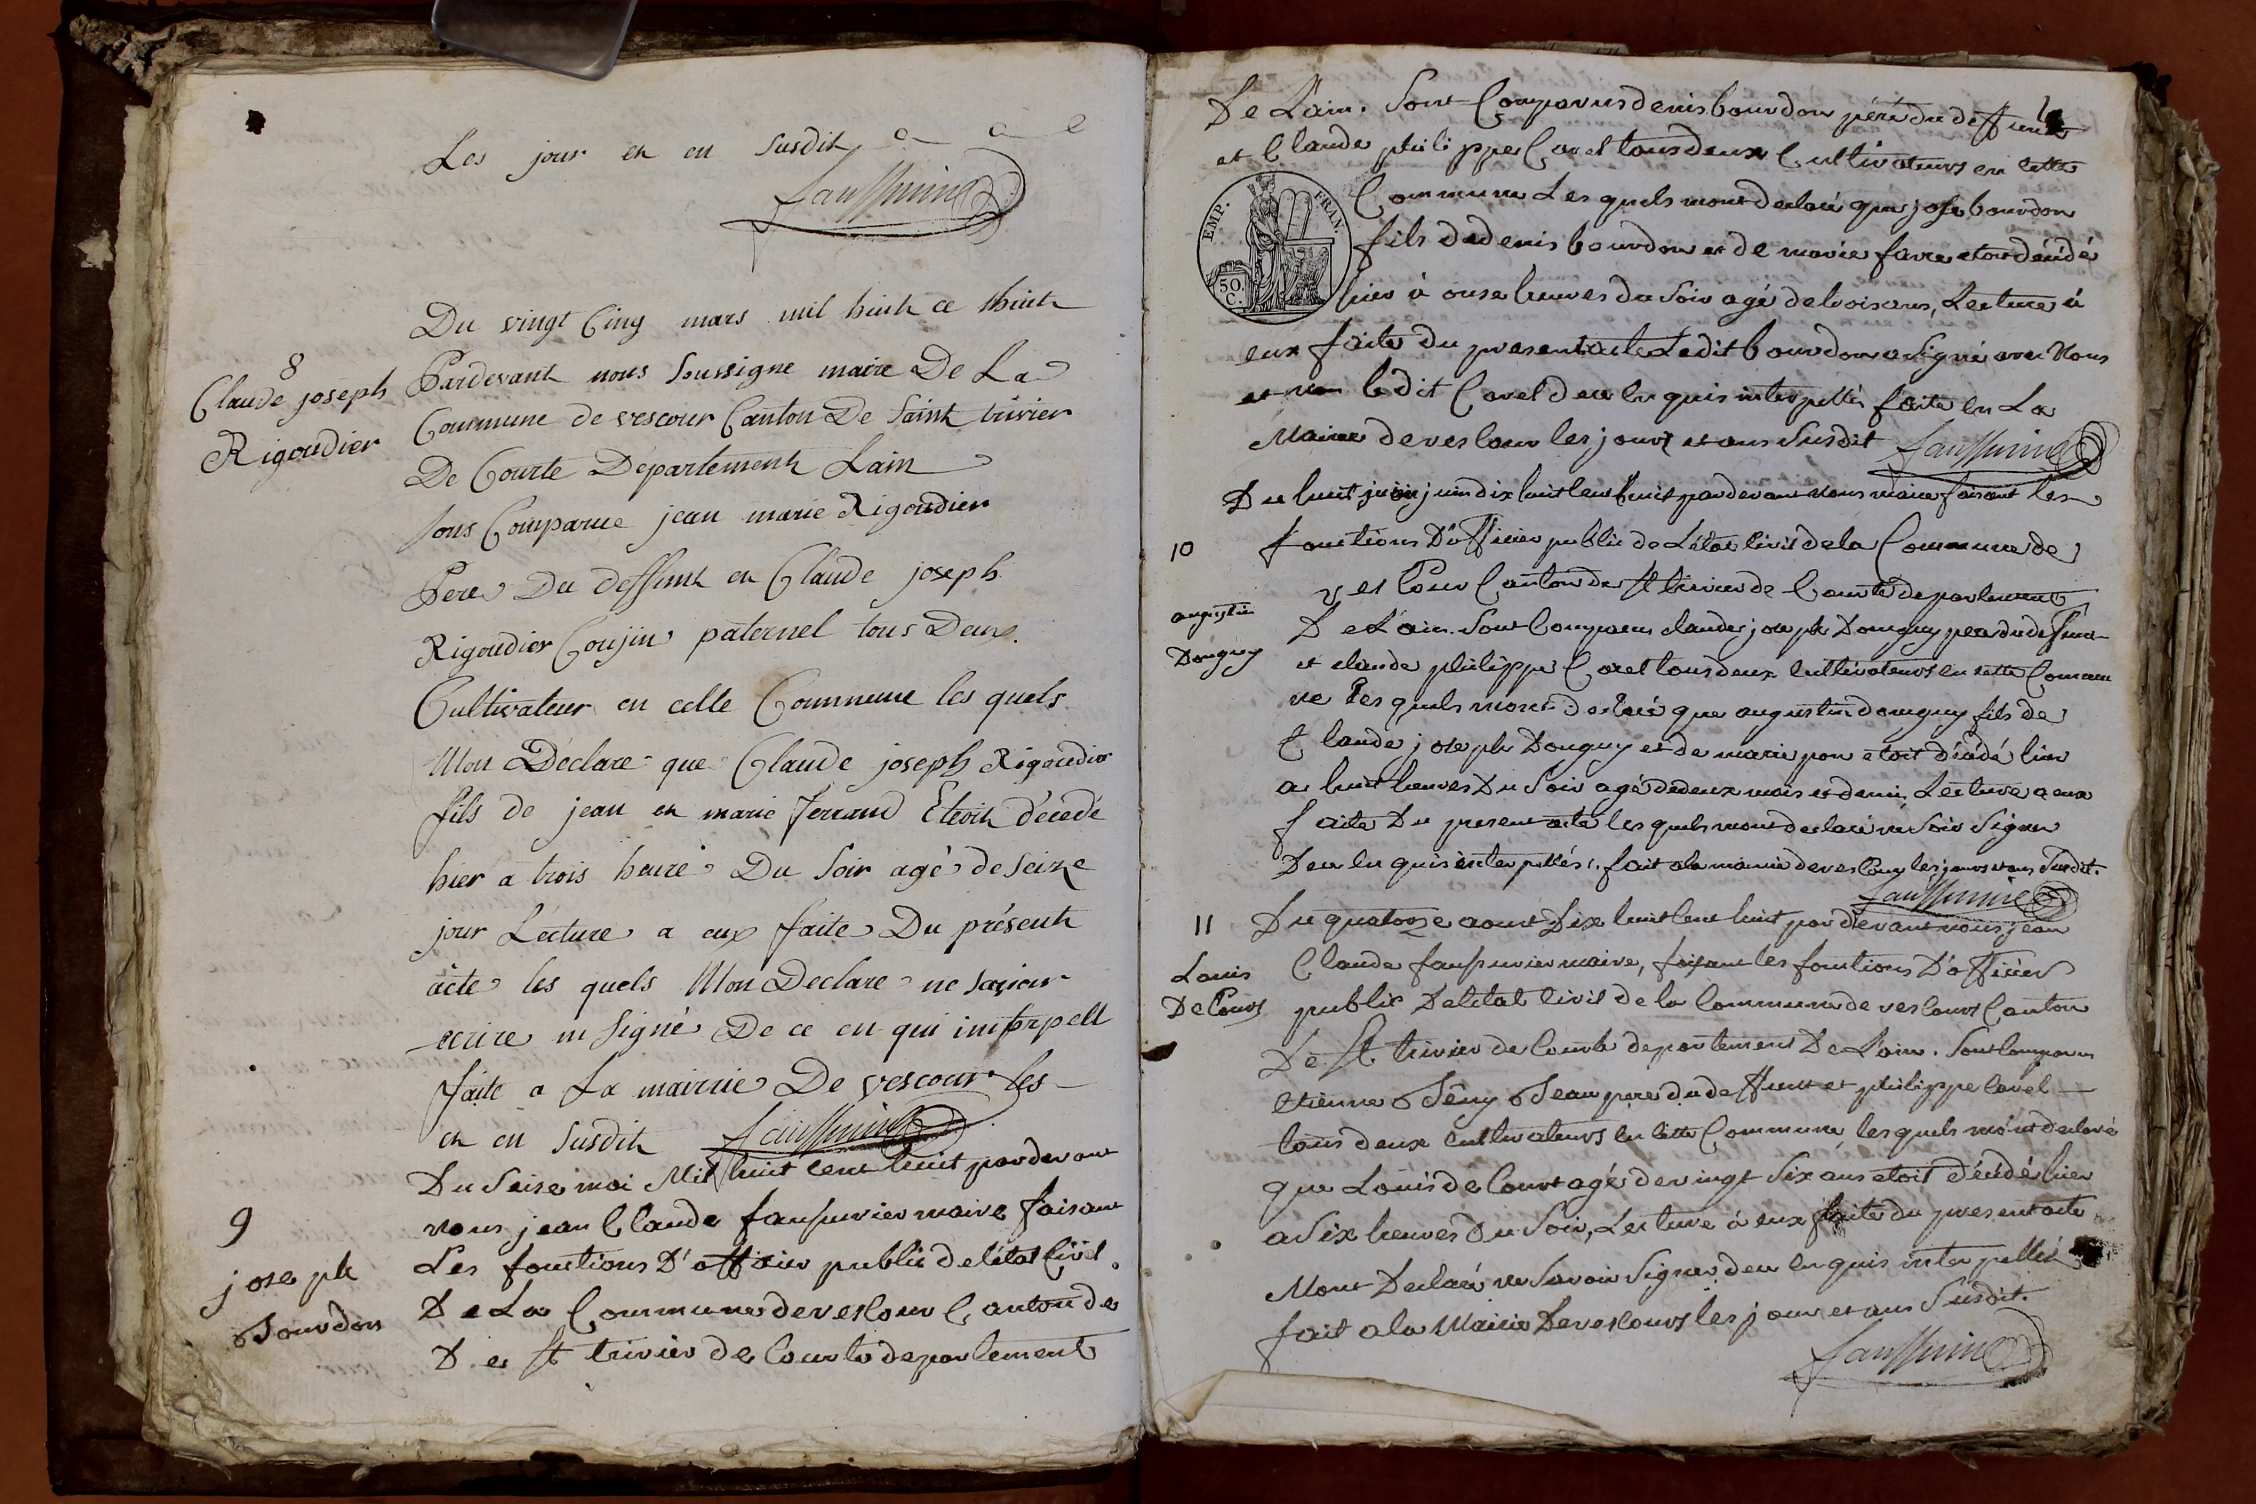 Les jour et en susdit
Faussurier
Du vingt Cinq mars mil huit ce thuit
8
Claude joseph
Rigoudier
Pardevant nous Soussigne maire De La
Commune de vescour Canton De Saint trivier
De Courte Département Lain
sons Comparue jean marie Rigoudier
Pere Du deffunt en Claude joseph
Rigoudier Coujin paternel tous Deux
Cultivateur en cette Commune les quels
Mon Déclare que Claude joseph Rigoudier
fils de jean en marie ferrand Etoit décédé
hier a trois heure Du Soir agé de seize
jour Lecture a eux faite Du présent
acte les quels Mon Declare ne savoir
ecrire ni Signé De ce en qui interpell
faite a La mairie De vescour les
en en susdit Faussurier
9
joseph
Bourdon
Du Seise mai Mil huit cent huit pardevant
nous jean Claude faussurier maire faisant
Les fonctions D'officier public de létat Civil
De La Commune de vescour Canton de
De St trivier de Courte departement
De L'ain. Sont Comparus denis bourdon pére du deffunt
et Claude philippe Cavel tous deux Cultivateurs en cette
EMP. FRAN.
50.
C.
Commune Les quels mont declaré que jose bourdon
fils de denis bourdon et de marie favre etoit décédé
hier à onse heures du Soir agé de trois ans, Lecture à
eux faite du present acte Ledit bourdon a Signé avec Nous
et non ledit Cavel de ce enquis interpellé faite en La
Mairie de vescour les jours et ans Susdit Faussurier
10
augustin
Donguy
Du huit juin dix huit cent huit pardevant nous maire faisant les
fonctions D'officier public de Létat Civil de la Commune de
vescour Canton de St trivier de Courte departement
De L'ain. Sont Comparus claude joseph Donguy pere du deffunt
et claude philippe Cavel tous deux cultivateurs en cette Commu
ne Les quels mont declaré que augustin donguy fils de
Claude joseph Donguy et de marie pon etoit décédé hier
a huit heures Du Soir agé de deux mois et demi Lecture a eux
faite Du present acte les quels mont declaré ne Savoir Signer
De ce en quis interpellés. fait a la mairie de vescour les jours et ans Susdit.
Faussurier
11
Louis
De Cours
Du quatorze aout Dix huit cent huit pardevant nous jean
Claude faussurier maire, faisant les fonctions D'officier
public De létat Civil de la Commune de vescours Canton
De St. trivier de Courte departement De L'ain. Sont Comparus
etienne pere du deffunt et philippe Cavel
tous deux cultivateurs en cette Commune, les quels mont declaré
que Louis de Cours agé de vingt Six ans etoit décédé hier
a Six heures Du Soir, Lecture à eux faite du present acte
Mont Declaré ne Savoir Signer de ce en quis interpellé
fait a la Mairie De vescours les jour et ans Susdit.
Faussurier